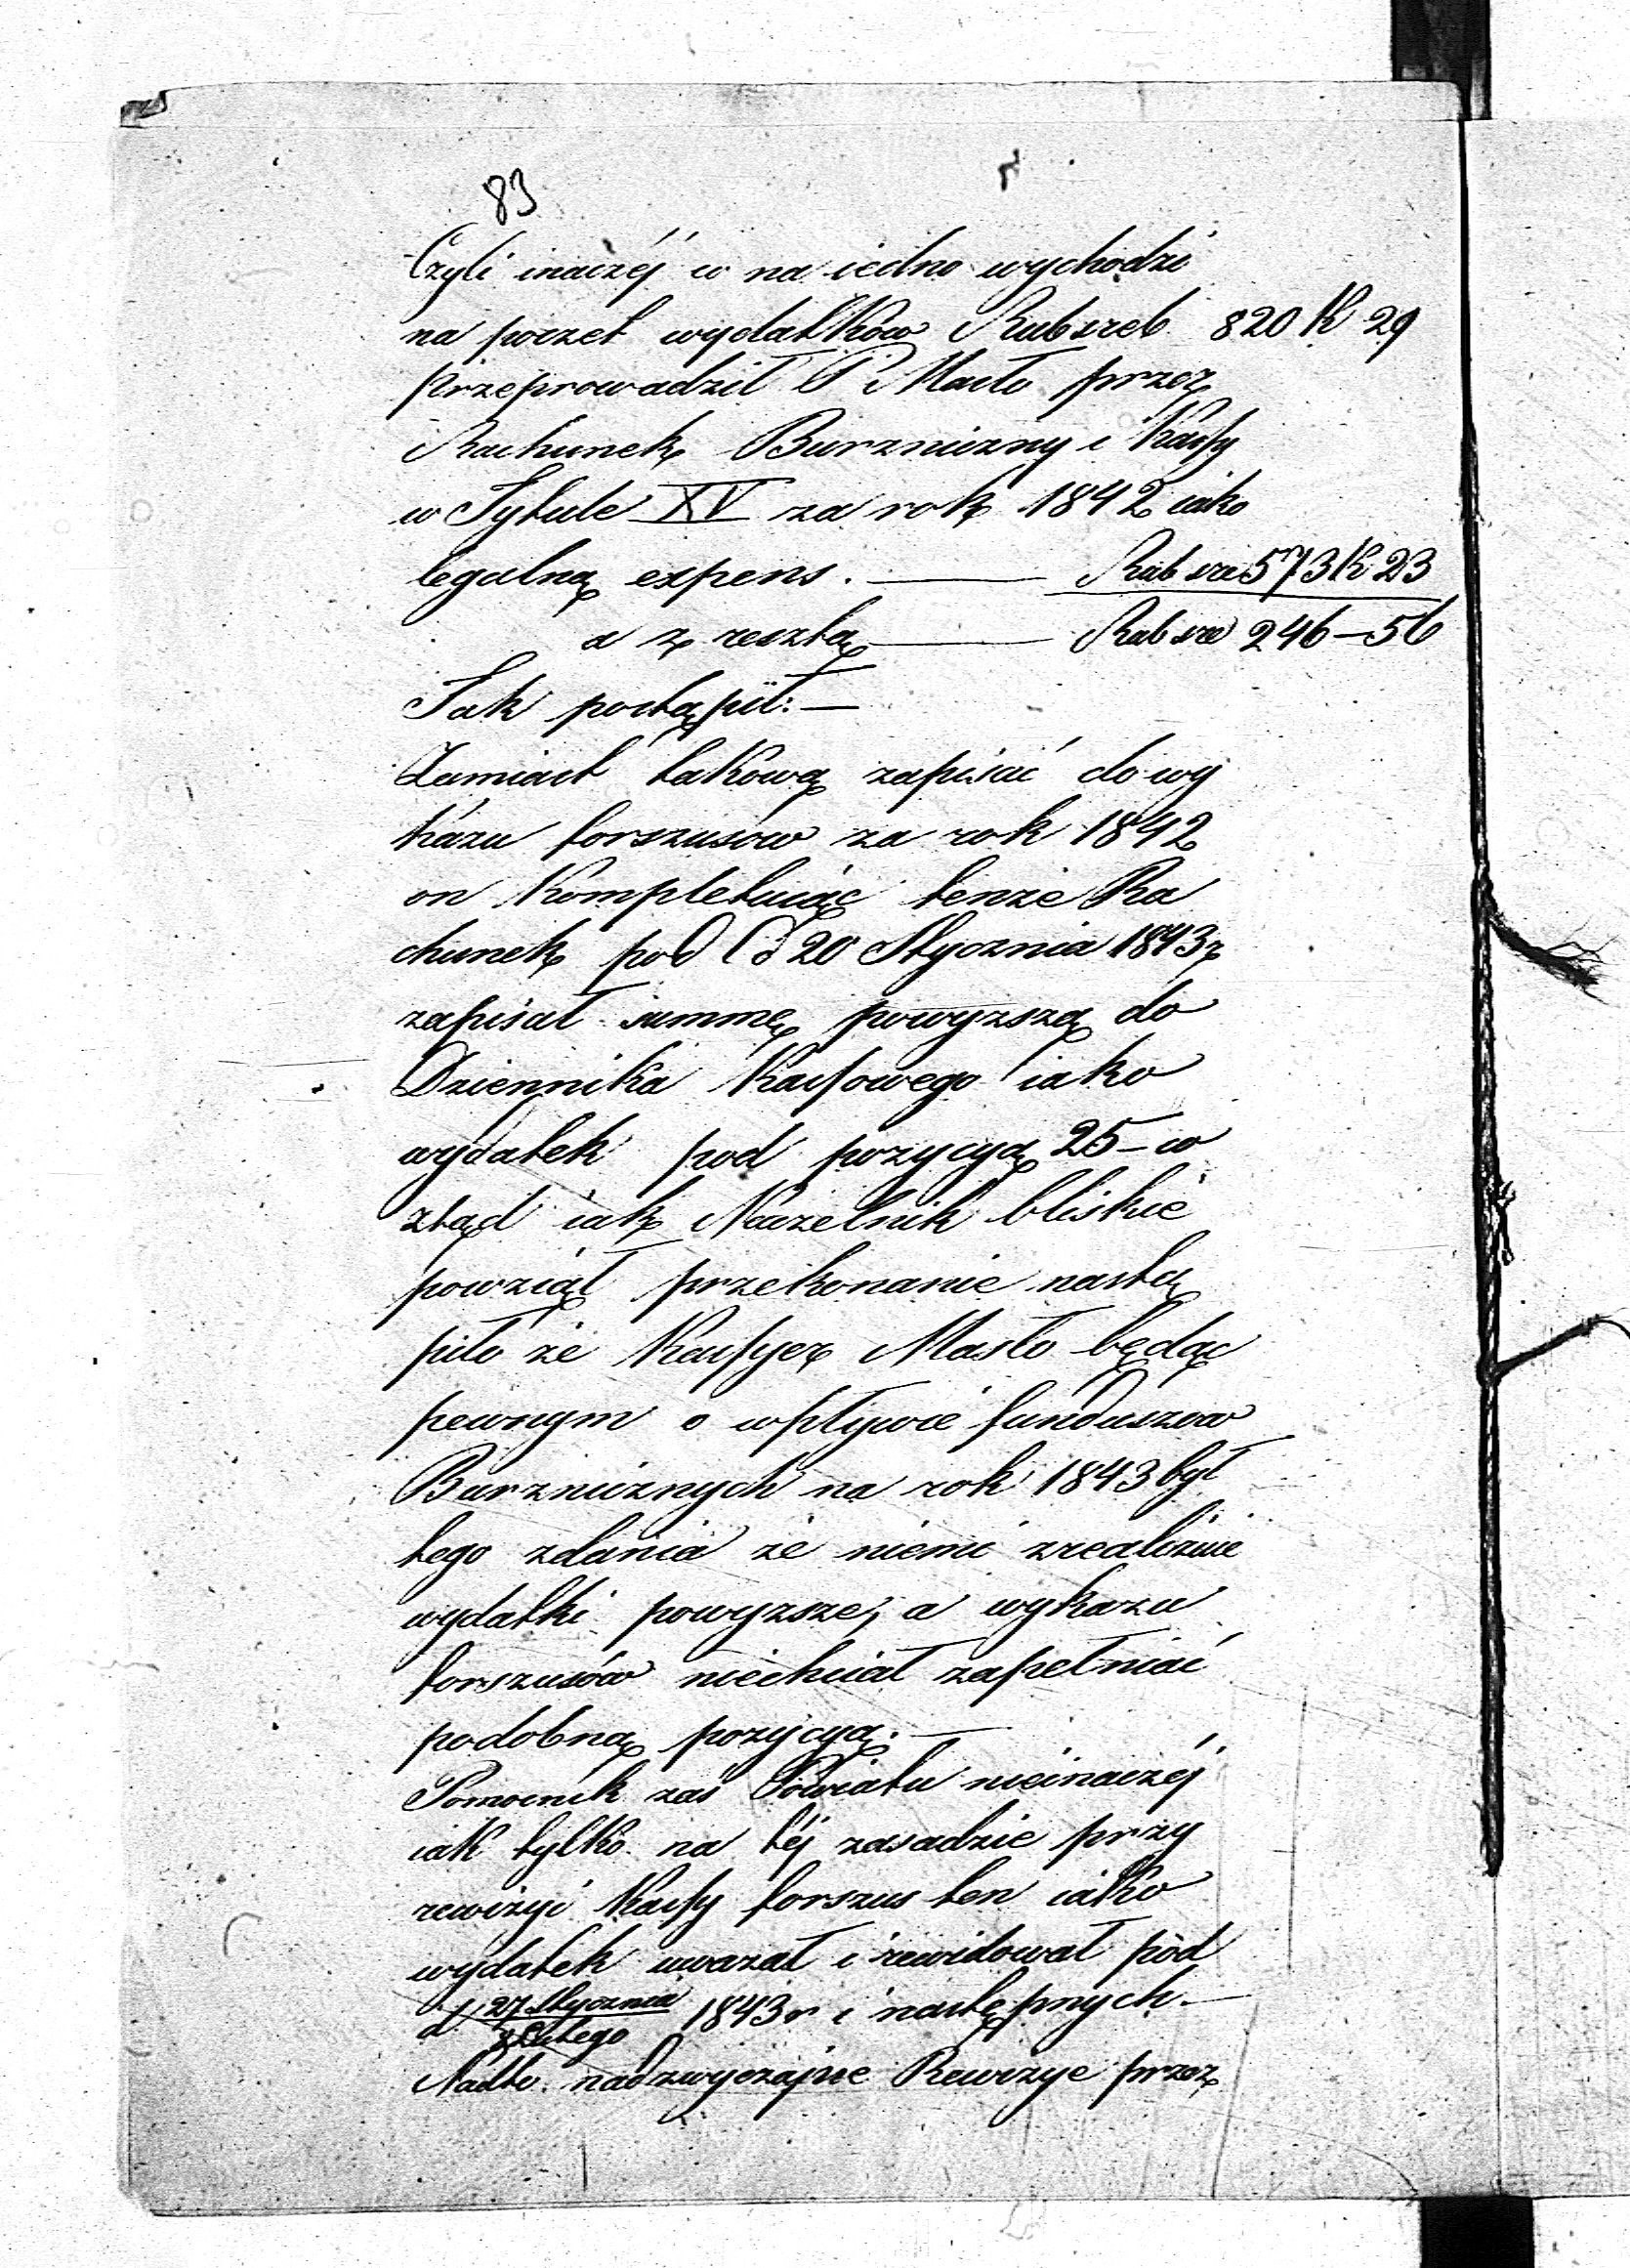 83
Czyli inaczéj co na iedno wychodzi
na poczet wydatków Rubsreb 820 K 29
przeprowadził P Masło przez
Rachunek Burzniczny i Kassy
w Tytule XV za rok 1842 iako
legalną expens. — Rub sre 573 K 23
a z resztą — Rub sre 246 – 56
Tak postąpił: —
Zamiast takową zapisać do wy
kazu forszusów za rok 1842
on Kompletuiąc tenże Ra
chunek pod 20 Stycznia 1843 r
zapisał summę powyzszą do
Dziennika Kassowego iako
wydatek pod pozycyą 25 – co
ztąd iak Naczelnik bliskie
powziął przekonanie nastą
piło że Kassyer Masło będąc
pewnym o wpływie funduszow
Burznicznych na rok 1843 był
tego zdania że niemi zrealizuie
wydatki powyzsze, a wykazu
forszusów niechciał zapełniać
podobną pozycyą. —
Pomocnik zaś Powiatu nieinaczéj
iak tylko na téj zasadzie przy
rewizyi Kassy forszus ten iako
wydatek uwazał i rewidował pod
d. 27 Stycznia / 8 Lutego 1843 r i następnych —
Nadto nadzwyczajne Rewizye przez